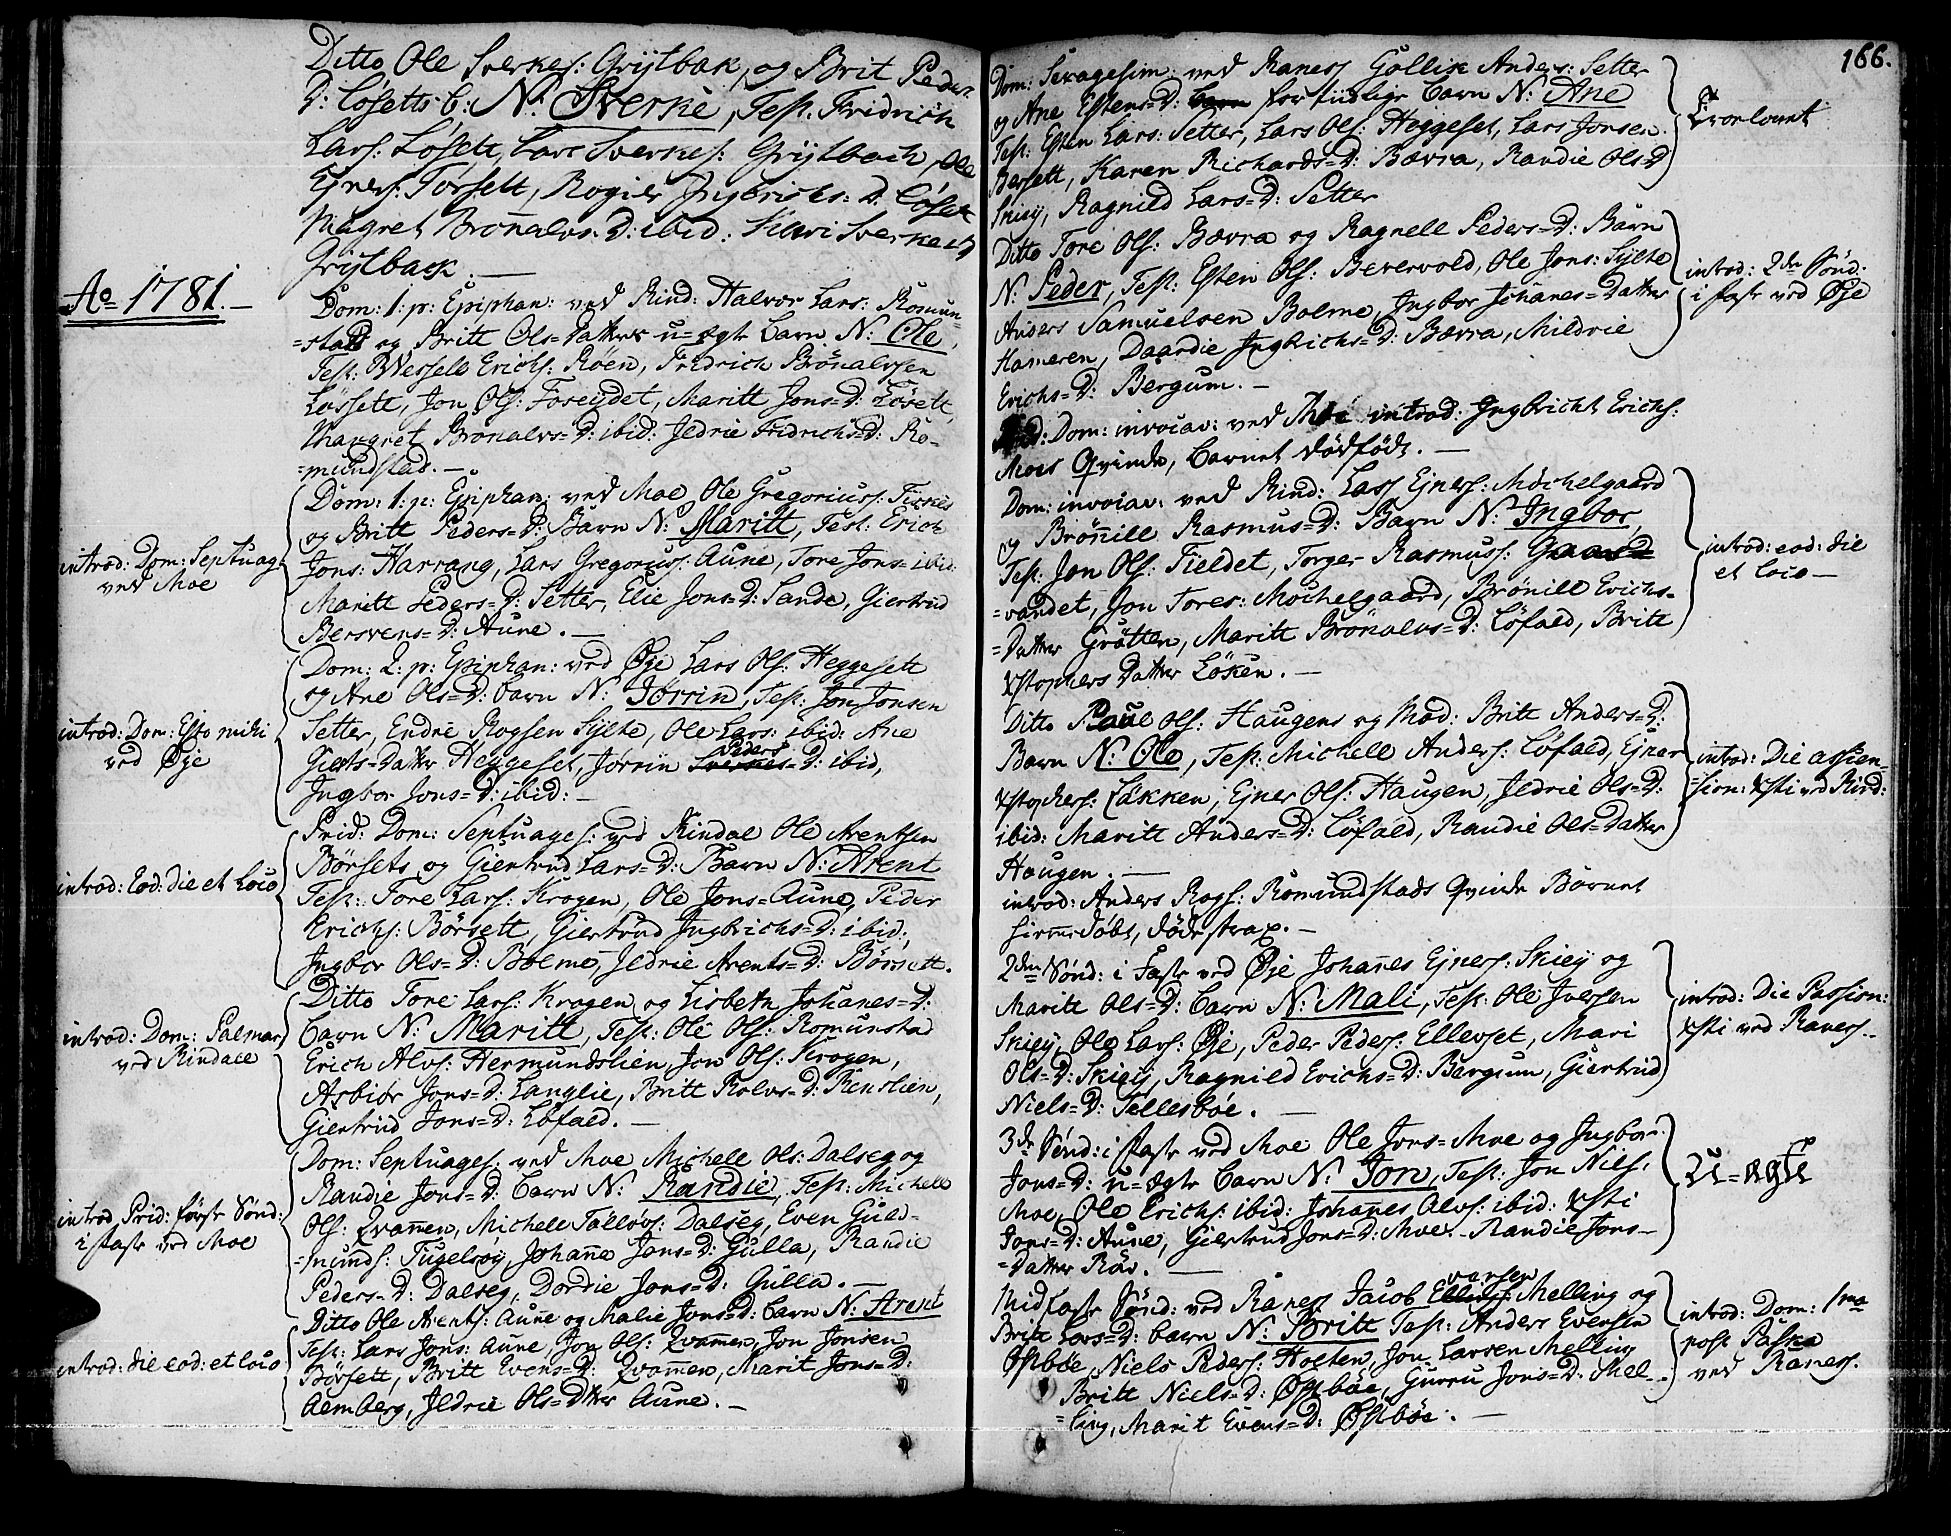 Ditto Ole Sverkes: Grytbak, og Brit Peders
D: Løsetts b: N: Sverke, Test. Fridrich
Lars: Løsett, Lars Sverkes: Grytbach, Ole
Ejners: Torsett, Rogier Ingbrichs=D: Løsett
Magret Brønalvs=D: ibid: Kari Sverkes D
Grytback. —
Ao 1781. —
Dom: 1: p: Epiphan: ved Rind: Halvor Lars: Romun-
=stad og Britt Ols=Datter u=ægte barn N: Ole,
Test: Wessele Erichs: Røen, Fredrich Brönalvsen
Løssett, Jon Ols: Foreydet, Maritt Jons=D: Lösett,
Margret Brönalvs=D: ibid: Jldrie Fridrichs=D: Ro-
=mundstad. —
Dom: 1: p: Epiphan: ved Moe Ole Gregoriuss: Fiske
og Britt Peders=D: Barn N: Maritt, Test: Erich
Jons: Harrang, Lars Gregorius: Aune, Tore Jons= ibid
Maritt Peders=D: Setter, Elie Jons=D: Sande, Giertrud
Bersvens=D: Aune. —
introd: Dom: Septuag:
ved Moe
Dom: 2: p: Epiphan: ved Øye Lars Ols: Heggesett
og Ane Ols=D: barn N: Jørrin, Test: Jon Jonsen
Setter, Endre Rogsen Sylte, Ole Lars: ibid: Ane
Gierts=Datter Heggeset, Jørrin Peders=D: ibid,
Ingbor Jons=D: ibid: —
introd: Dom: Esto mihi
ved Øye
Prid: Dom: Septuages: ved Rindal Ole Arentsen
Børsets og Giertrud Lars=D: Barn N: Arent
Test: Tore Lars: Krogen, Ole Jons=Aune, Peder
Erichs: Börsett, Giertrud Ingbrichs=D: ibid:,
Ingbor Ols=D: Bolme, Jldrie Arents=D: Börsett.
introd: Eod: die et Loco
Ditto Tore Lars: Krogen og Lisbeth Johanes=D:
barn N: Maritt, Test: Ole Ols: Romunstad
Erich Alvs: Hermundslien, Jon Ols: Krogen,
Asbiör Jons=D: Langlie, Britt Rolvs=D: Renslien,
Giertrud Jons=D: Löfald. —
introd: Dom: Palmar
ved Rindale
Dom: Septuages: ved Moe Michell Ols: Dalseg og
Randie Jons=D: barn N: Randie, Test: Michell
Ols: Qvamen, Michell Tölløvs: Dalseg, Even Guld-
=munds: Fugelsöy, Johane Jons=D: Gulla, Randie
Peders=D: Dalseg, Dordie Jons=D: Gulla. —
introd, Prid: förste Sönd:
i faste ved Moe
Ditto Ole Arents: Aune og Malie Jons=D: barn N: Arent
Test: Lars Jons: Aune, Jon Ols: Qvamen, Jon Jonsen
Börsett, Britt Evens=D: Qvamen, Marit Jons=D:
Aemberg, Jldrie Ols=Dtter Aune. —
introd: die eod: et loco
166.
Dom: Sexagesim: ved Raness Gollik Anders: Setter
og Ane Estens=D: for tiidlige barn N: Ane
Test: Esten Lars: Setter, Lars Ols: Heggeset, Lars Jonsen
Børsett, Karen Richards=D: Bævra, Randie Ols=D
Skiey, Ragnild Lars=D: Setter
Trorlovet
Ditto Tore Ols: Bævra og Ragnell Peders=D: Barn
N: Peder, Test: Esten Ols: Bevervold, Ole Jons: Sylte
Anders Samuelsen Bolme, Ingbor Johanes=Datter
Hameren, Daardie Ingbrichs=D: Bævra, Mildrie
Erichs=D: Bergum. —
introd: 2den Sönd:
i faste ved Øye
Dom: invocav: ved Moe introd: Ingbricht Erichs:
Moes Qvinde, barnet dödfödt. —
Dom: invocav: ved Rind: Lars Ejners: Mochelgaard
og Brönnill Rasmus=D: Barn N: Ingbor,
Test: Jon Ols: Fieldet, Torger Rasmuss:
=vandet, Jon Tores: Mochelgaard, Brönill Erichs-
=Datter Grötten, Maritt Brönalvs=D: Löfald, Britt
Xstophers Datter Löken. —
introd: eod: die
et loco —
Ditto Paul Ols: Haugens og Mod: Britt Anders=D:
Barn N: Ole, Test: Michell Anders: Löfald, Ejner
Xstophers: Løkken, Ejner Ols: Haugen, Jldrie Ols=D:
ibid: Maritt Anders=D: Löfald, Randie Ols=Datter
Haugen. —
introd: Die ascen-
=sion: Xsti ved Rind:
introd: Anders Rogs: Romundstads Qvinde Barnet
hiemedöbt, döde strax. —
2den Sönd: i Faste ved Øye Johanes Ejners: Skiey og
Maritt Ols=D: barn N: Mali, Test: Ole Iversen
Skiey, Ole Lars: Øye, Peder Peders: Ellevset, Mari
Ols=D: Skiey, Ragnild Erichs=D: Bergum, Giertrud
Niels=D: Tellesböe. —
introd: Die Passion:
Xsti ved Raness. -
3de Sönd: i faste ved Moe Ole Jons=Moe og Ingbor
Jons=D: u=ægte barn N: Jon, Test: Jon Niels:
Moe, Ole Erichs: ibid: Johanes Alvs: ibid: Xsti
Jons=D: Aune, Giertrud Jons=D: Moe. Randie Jons-
=Datter Röv. —
U=ægte
Midfaste Sönd: ved Raness Jacob Evensen Melling og
Britt Lars=D: barn N: Britt Test: Anders Evensen
Østbøe, Niels Peders: Holten, Jon Larsen Melling
Britt Niels=D: Østbøe, Gurru Jons=D: Mel-
=ling, Marit Evens=D: Østbøe. —
introd: Dom: 1ma
post Paska
ved Raness.